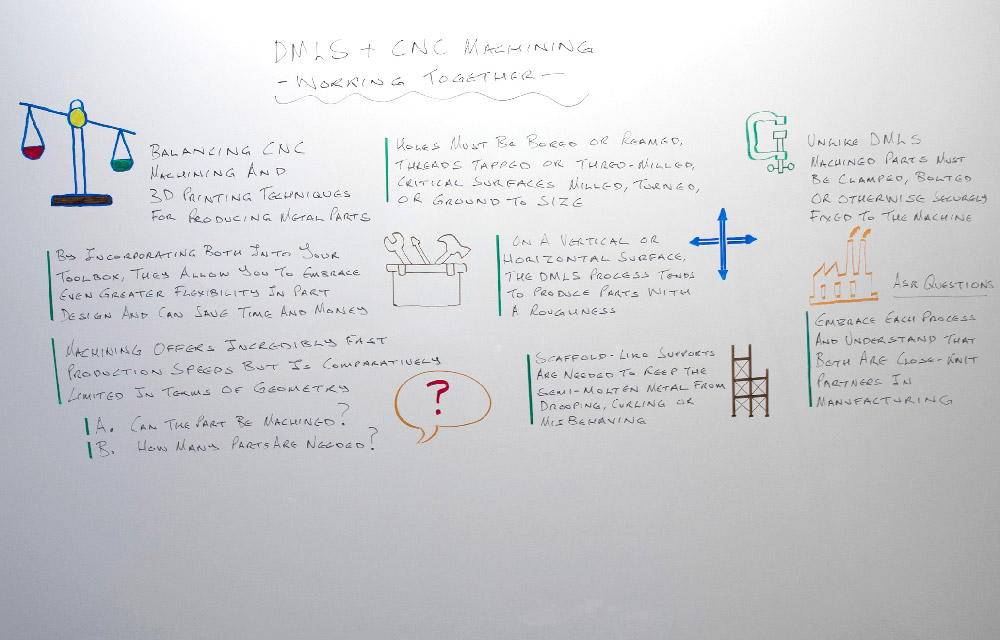 DMLS + CNC MACHINING
- WORKING TOGETHER -
BALANCING CNC
MACHINING AND
3D PRINTING TECHNIQUES
FOR PRODUCING METAL PARTS
BY INCORPORATING BOTH INTO YOUR
TOOLBOX, THEY ALLOW YOU TO EMBRACE
EVEN GREATER FLEXIBILITY IN PART
DESIGN AND CAN SAVE TIME AND MONEY
MACHINING OFFERS INCREDIBLY FAST
PRODUCTION SPEEDS BUT IS COMPARATIVELY
LIMITED IN TERMS OF GEOMETRY
A. CAN THE PART BE MACHINED?
B. HOW MANY PARTS ARE NEEDED?
?
HOLES MUST BE BORED OR REAMED,
THREADS TAPPED OR THRED-MILLED,
CRITICAL SURFACES MILLED, TURNED,
OR GROUND TO SIZE
ON A VERTICAL OR
HORIZONTAL SURFACE,
THE DMLS PROCESS TENDS
TO PRODUCE PARTS WITH
A ROUGHNESS
SCAFFOLD-LIKE SUPPORTS
ARE NEEDED TO KEEP THE
SEMI-MOLTEN METAL FROM
DROOPING, CURLING OR
MISBEHAVING
UNLIKE DMLS
MACHINED PARTS MUST
BE CLAMPED, BOLTED
OR OTHERWISE SECURELY
FIXED TO THE MACHINE
ASK QUESTIONS
EMBRACE EACH PROCESS
AND UNDERSTAND THAT
BOTH ARE CLOSE-KNIT
PARTNERS IN
MANUFACTURING